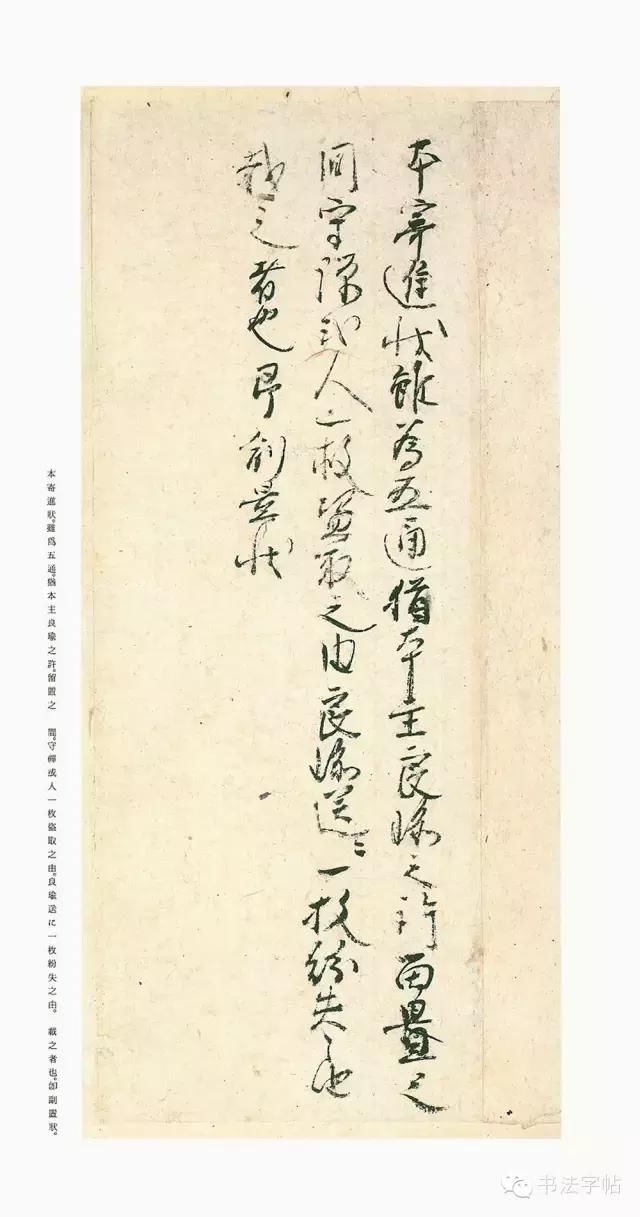 本寄進状雖為五通猶本主良瑜之許留置之
間守禅或人一枚盗取之由良瑜送ニ一枚紛失之由
載之者也即副置状
本寄進狀。雖爲五通。猶本主良瑜之許。留置之 間。守禪或人一枚盜取之由。良瑜送に一枚紛失之由。 載之者也。卽副置狀。
书法字帖